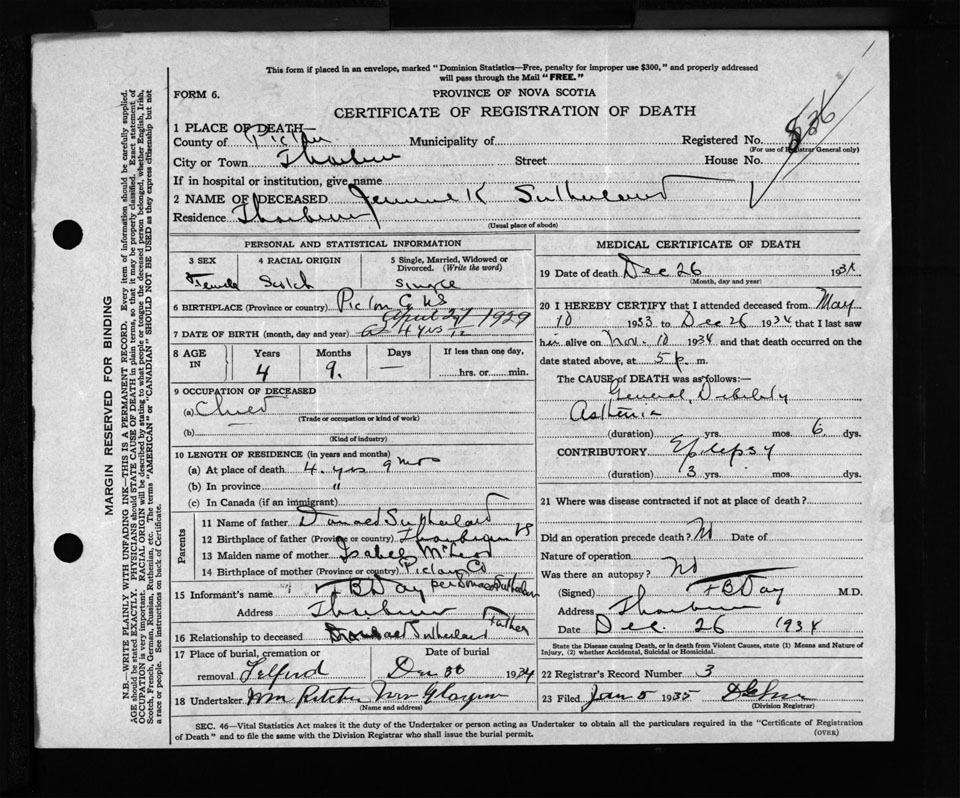 This form if placed in an envelope, marked "Dominion Statistics—Free, penalty for improper use $300," and properly addressed
will pass through the Mail "FREE."
FORM 6.
PROVINCE OF NOVA SCOTIA
CERTIFICATE OF REGISTRATION OF DEATH
836
1 PLACE OF DEATH—
County of Pictou Municipality of Registered No.
(For use of Registrar General only)
City or Town Thorburn Street House No.
If in hospital or institution, give name
2 NAME OF DECEASED Jemima K Sutherland
Residence Thorburn
(Usual place of abode)
PERSONAL AND STATISTICAL INFORMATION
3 SEX 4 RACIAL ORIGIN 5 Single, Married, Widowed or Divorced. (Write the word)
Female Scotch Single
6 BIRTHPLACE (Province or country) Pictou Co NS
7 DATE OF BIRTH (month, day and year) April 1929
4 yrs
8 AGE IN Years Months Days If less than one day,
4 9. — hrs. or min.
9 OCCUPATION OF DECEASED
(a) Child
(Trade or occupation or kind of work)
(b)
(Kind of industry)
10 LENGTH OF RESIDENCE (in years and months)
(a) At place of death 4 yrs 9 mos
(b) In province "
(c) In Canada (if an immigrant)
Parents
11 Name of father Donald Sutherland
12 Birthplace of father (Province or country) NS
13 Maiden name of mother Isabel McLeod
14 Birthplace of mother (Province or country) Pictou Co
15 Informant's name F B Day per Donald Sutherland
Address Thorburn
16 Relationship to deceased Donald Sutherland Father
17 Place of burial, cremation or Date of burial
removal Telford Dec 1934
18 Undertaker Wm Ritchie New Glasgow
(Name and address)
MEDICAL CERTIFICATE OF DEATH
19 Date of death Dec 26 1934
(Month, day and year)
20 I HEREBY CERTIFY that I attended deceased from May
10 1933 to Dec 26 1934 that I last saw
her alive on Nov. 10 1934 and that death occurred on the
date stated above, at 5 p. m.
The CAUSE of DEATH was as follows:—
General Debility
Asthenia
(duration) yrs. mos. 6 dys.
CONTRIBUTORY Epilepsy
(duration) 3 yrs. mos. dys.
21 Where was disease contracted if not at place of death?
Did an operation precede death? No Date of
Nature of operation
Was there an autopsy? No
(Signed) F B Day M.D.
Address Thorburn
Date Dec. 26 1934
State the Disease causing Death, or in death from Violent Causes, state (1) Means and Nature of
Injury, (2) whether Accidental, Suicidal or Homicidal.
22 Registrar's Record Number 3
23 Filed Jan 5 1935
(Division Registrar)
SEC. 46—Vital Statistics Act makes it the duty of the Undertaker or person acting as Undertaker to obtain all the particulars required in the "Certificate of Registration
of Death" and to file the same with the Division Registrar who shall issue the burial permit.
(OVER)
MARGIN RESERVED FOR BINDING
N.B.—WRITE PLAINLY WITH UNFADING INK—THIS IS A PERMANENT RECORD. Every item of information should be carefully supplied.
AGE should be stated EXACTLY. PHYSICIANS should STATE CAUSE OF DEATH in plain terms, so that it may be properly classified. Exact statement of
OCCUPATION is very important. RACIAL ORIGIN will be described by stating to what people or tongue the deceased person belonged, whether English, Irish,
Scotch, French, German, Russian, Ruthenian, etc. The terms "AMERICAN" or "CANADIAN" SHOULD NOT BE USED as they express citizenship but not
a race or people. See instructions on back of Certificate.